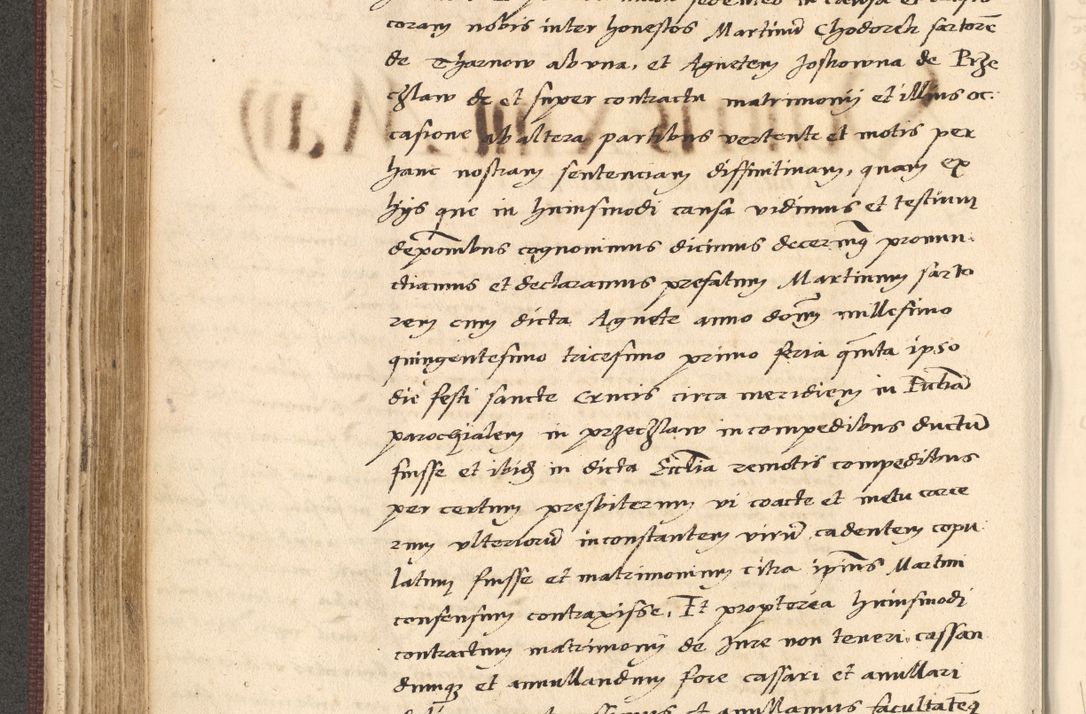 coram nobis inter honestos Martinū Chodorek sartorē
de Tharnow ab vna, et Agnetem Joskowna de Prze
czlaw de et super contractu matrimonij et illius oc.
casione ab altera partibus vertente et motis per
hanc nostram sentenciam diffinitinam, quam ex
hijs que in huiusmodi causa vidimus et testium
depo͞nibus cognouimus dicimus decernimq pronun
ctiamus et declaramus prefatum Martinum sarto
rem cum dicta Agnete anno dom̄ millesimo
quingentesimo tricesimo primo feria qm̄ta ipso
die festi sancte Crucis circa meridiem in Ecc͞liā
parochialem in przeczlaw in compedibus ductū
fuisse et ibid̄ in dicta Ecc͞lia remotis compedibus
per certum presbiterum vi coacte et metu carce
rum vlteriorū inconstantem virū cadentem copu
latum fuisse et matrimonium citra ip̄ius Martini
consensum contraxisse, Et propterea huiusmodi
contractum matrimonij de Jure non teneri, cassan
dumqz et annullandum fore cassari et annullari
et annullamus facultatēq